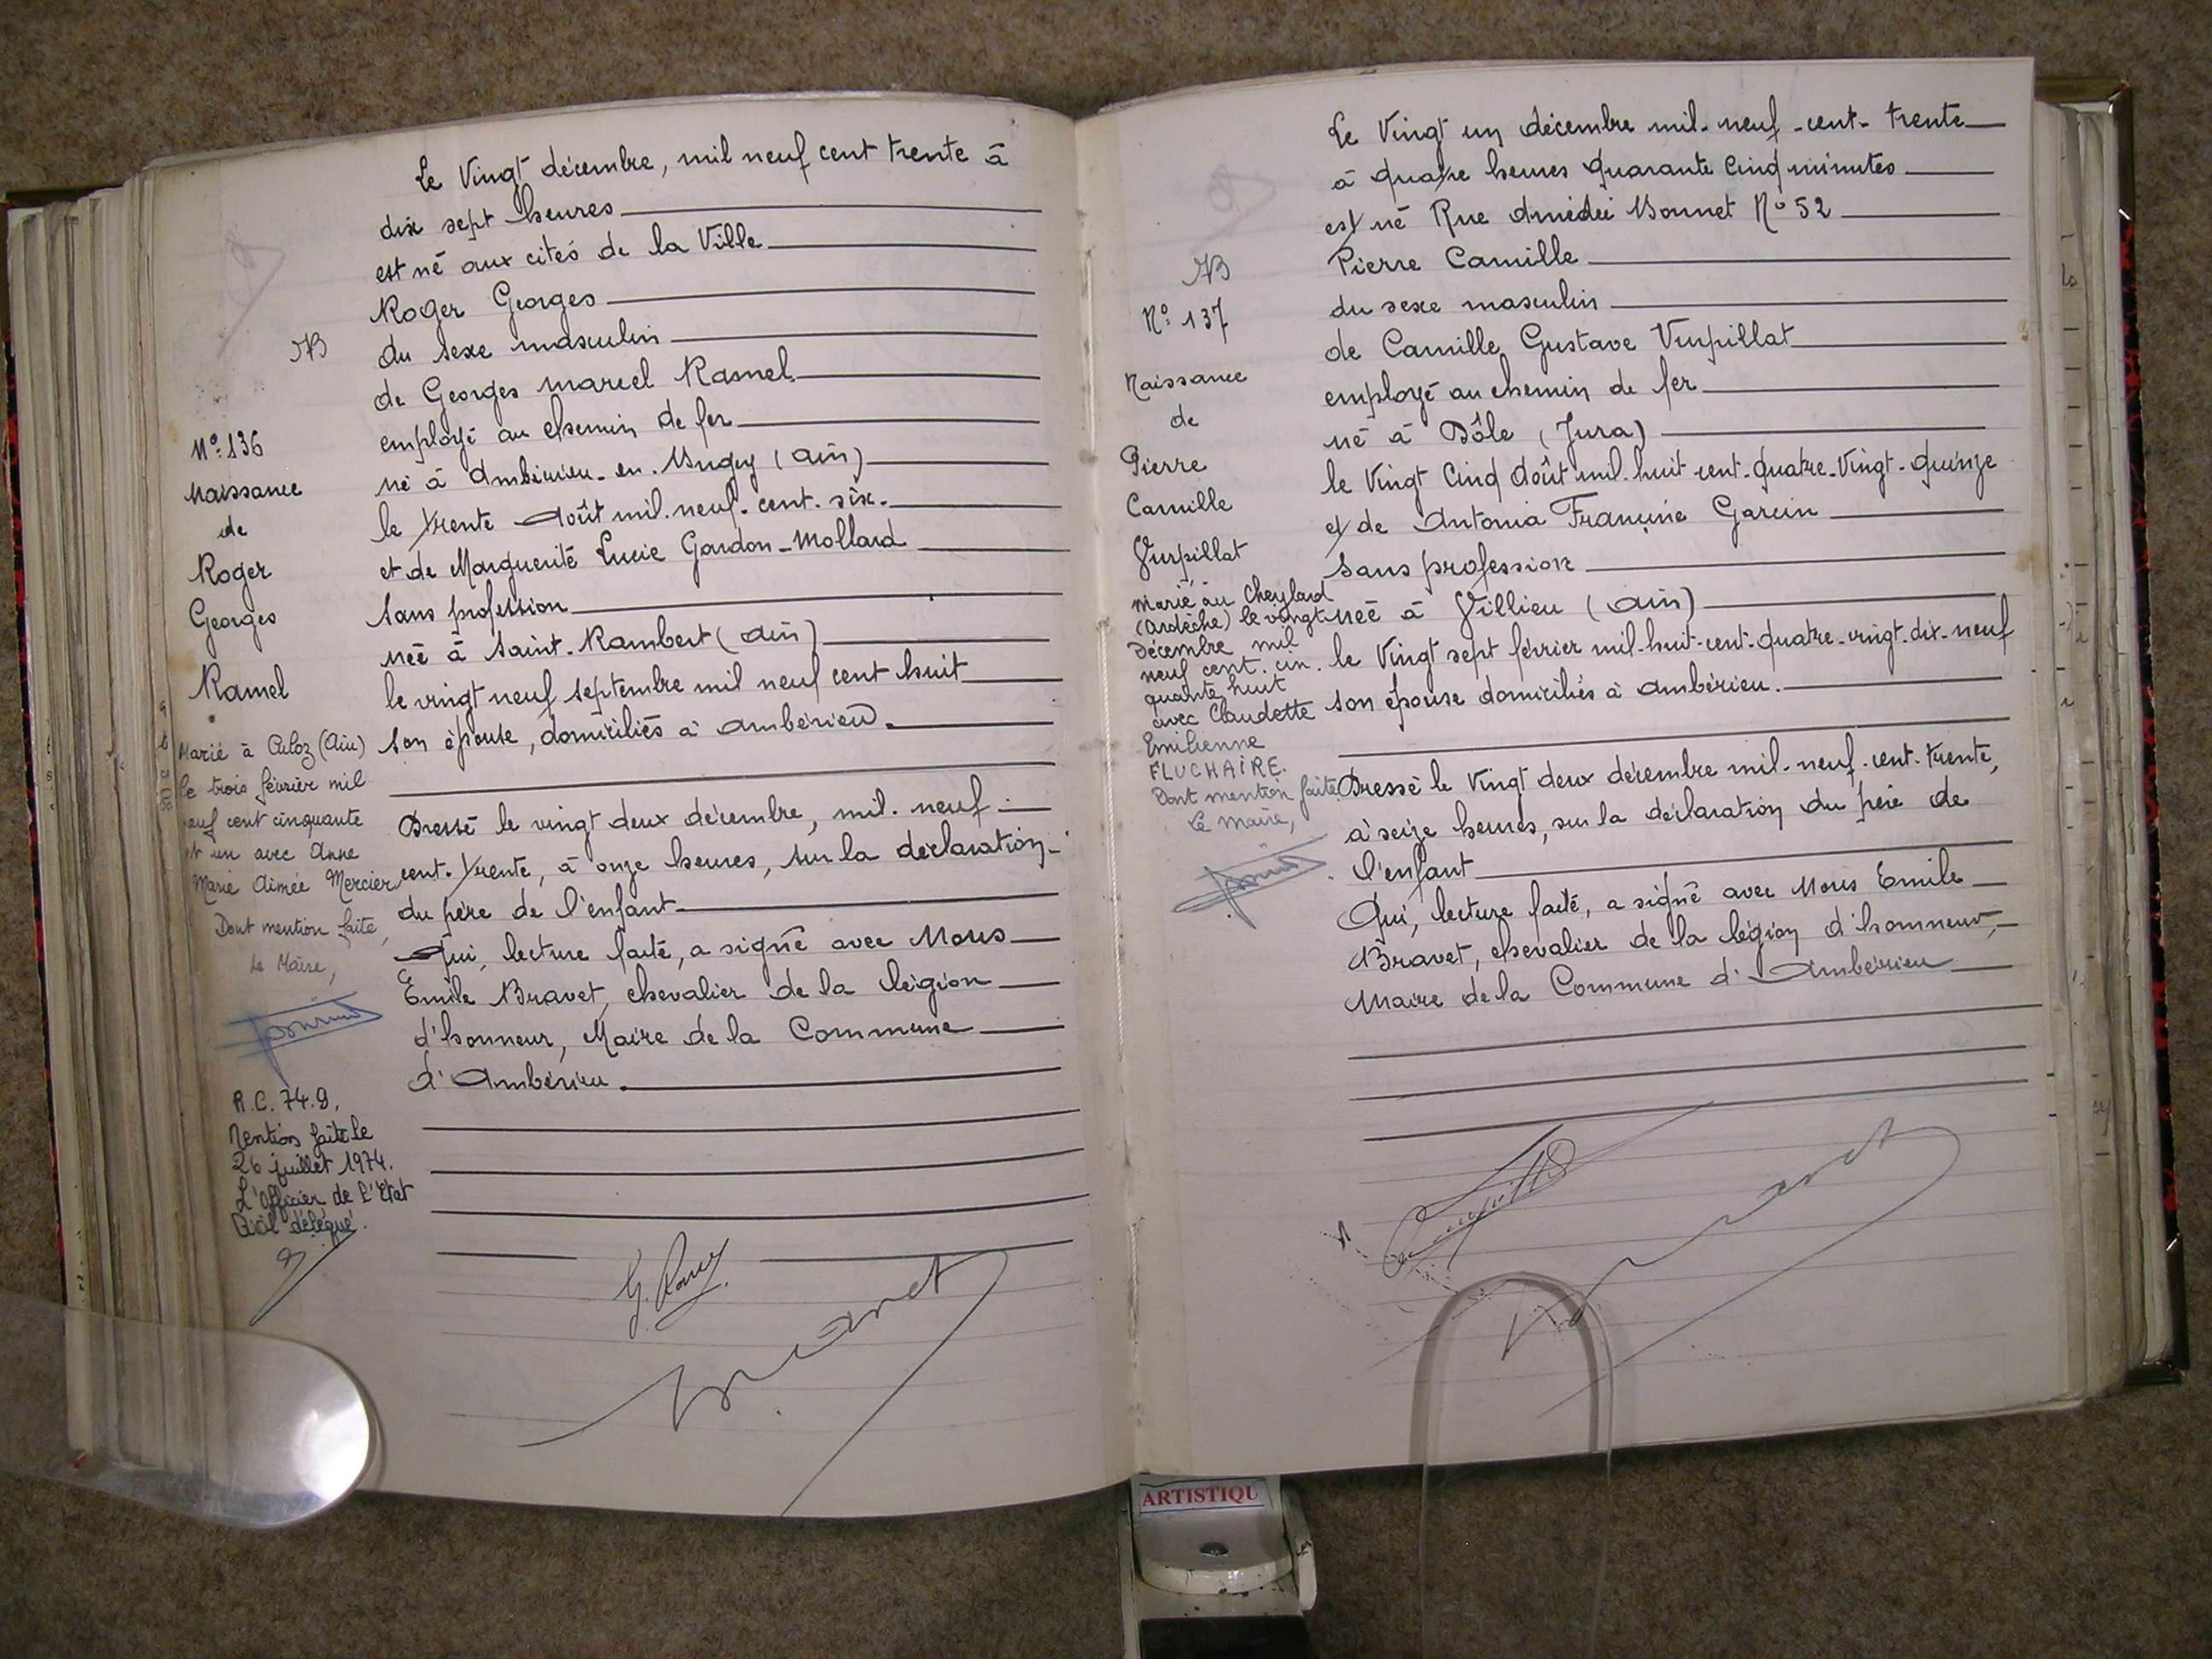 Le Vingt décembre, mil neuf cent trente à
dix sept heures
est né aux cités de la Ville
Roger Georges
du sexe masculin
de Georges Marcel Ramel
employé au chemin de fer
né à Ambérieu-en-Bugey (Ain)
le trente Août mil-neuf-cent-six-
et de Marguerite Lucie Gordon-Mollard
Sans profession
née à Saint-Rambert (Ain)
le vingt neuf septembre mil neuf cent huit
son épouse, domiciliés à Ambérieu.
Dressé le vingt deux décembre, mil-neuf-
cent-trente, à onze heures, sur la déclaration-
du père de l'enfant
Qui, lecture faite, a signé avec Nous
Emile Bravet, chevalier de la légion
d'honneur, Maire de la Commune
d'Ambérieu.
NB
N°:136
Naissance
de
Roger
Georges
Ramel
Marié à Culoz (Ain)
le trois février mil
neuf cent cinquante
et un avec Anne
Marie Aimée Mercier
Dont mention faite,
Le Maire,
R.C. 74.9.
Mention faite le
26 juillet 1974.
L'Officier de l'Etat
Civil délégué.
Le Vingt un décembre mil-neuf-cent-trente
à quatre heures quarante cinq minutes
est né Rue Amédée Bonnet N° 52
Pierre Camille
du sexe masculin
de Camille Gustave Vurpillat
employé au chemin de fer
né à Dôle (Jura)
le Vingt Cinq Août mil-huit-cent-quatre-Vingt-quinze
et de Antonia Francine Garcin
Sans profession
née à Villieu (Ain)
le Vingt sept février mil-huit-cent-quatre-vingt-dix-neuf
son épouse domiciliés à Ambérieu.
Dressé le Vingt deux décembre mil-neuf-cent-trente,
à seize heures, sur la déclaration du père de
l'enfant
Qui, lecture faite, a signé avec Nous Emile
Bravet, chevalier de la légion d'honneur,
Maire de la Commune d'Ambérieu
NB
N°: 137
Naissance
de
Pierre
Camille
Vurpillat
Marié au Cheylard
(Ardèche) le vingt
Décembre mil
neuf cent cin-
quante huit
avec Claudette
Emilienne
FLUCHAIRE.
Dont mention faite
Le Maire,
ARTISTIQU